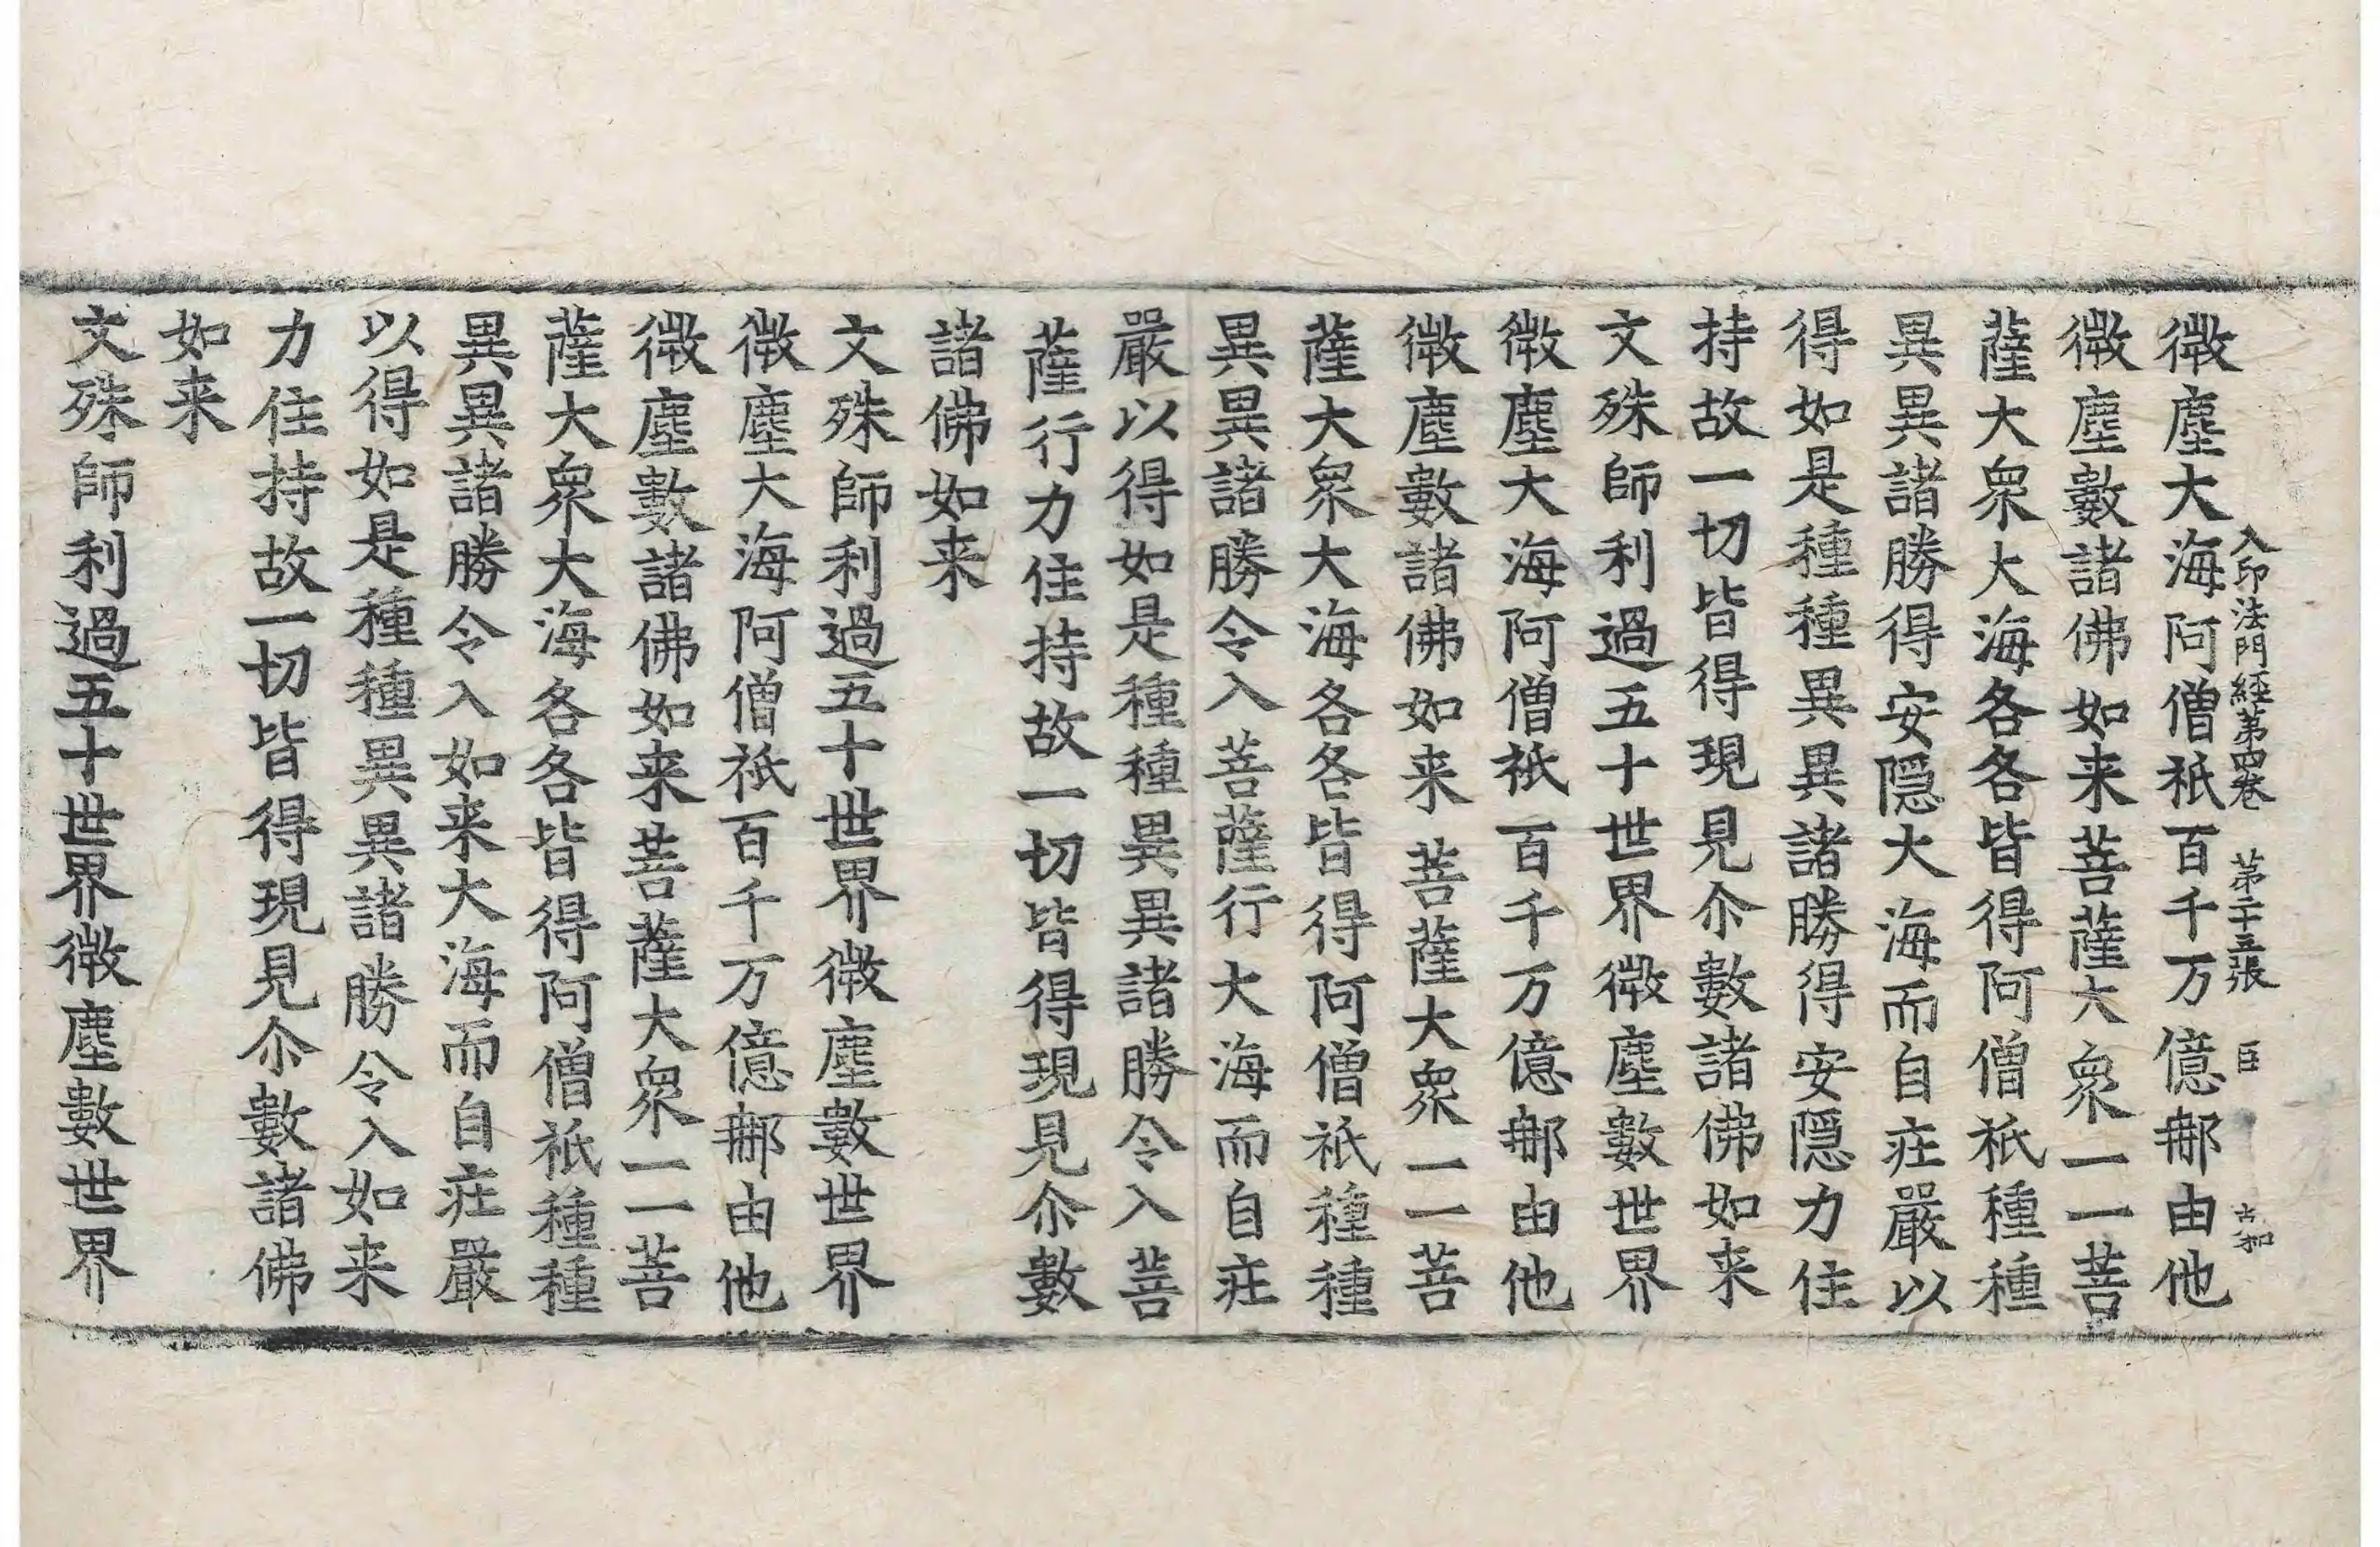 入印法門經第四卷 第二十五張 臣 古和
微塵大海阿僧祇百千万億那由他
微塵數諸佛如来菩薩大衆一一菩
薩大衆大海各各皆得阿僧祇種種
異異諸勝得安隠大海而自疘嚴以
得如是種種異異諸勝得安隠力住
持故一切皆得現見尒數諸佛如来
文殊師利過五十世界微塵數世界
微塵大海阿僧祇百千万億那由他
微塵數諸佛如来菩薩大衆一一菩
薩大衆大海各各皆得阿僧祇種種
異異諸勝令入菩薩行大海而自疘
嚴以得如是種種異異諸勝令入菩
薩行力住持故一切皆得現見尒數
諸佛如来
文殊師利過五十世界微塵數世界
微塵大海阿僧祇百千万億那由他
微塵數諸佛如来菩薩大衆一一菩
薩大衆大海各各皆得阿僧祇種種
異異諸勝令入如来大海而自疘嚴
以得如是種種異異諸勝令入如来
力住持故一切皆得現見尒數諸佛
如来
文殊師利過五十世界微塵數世界